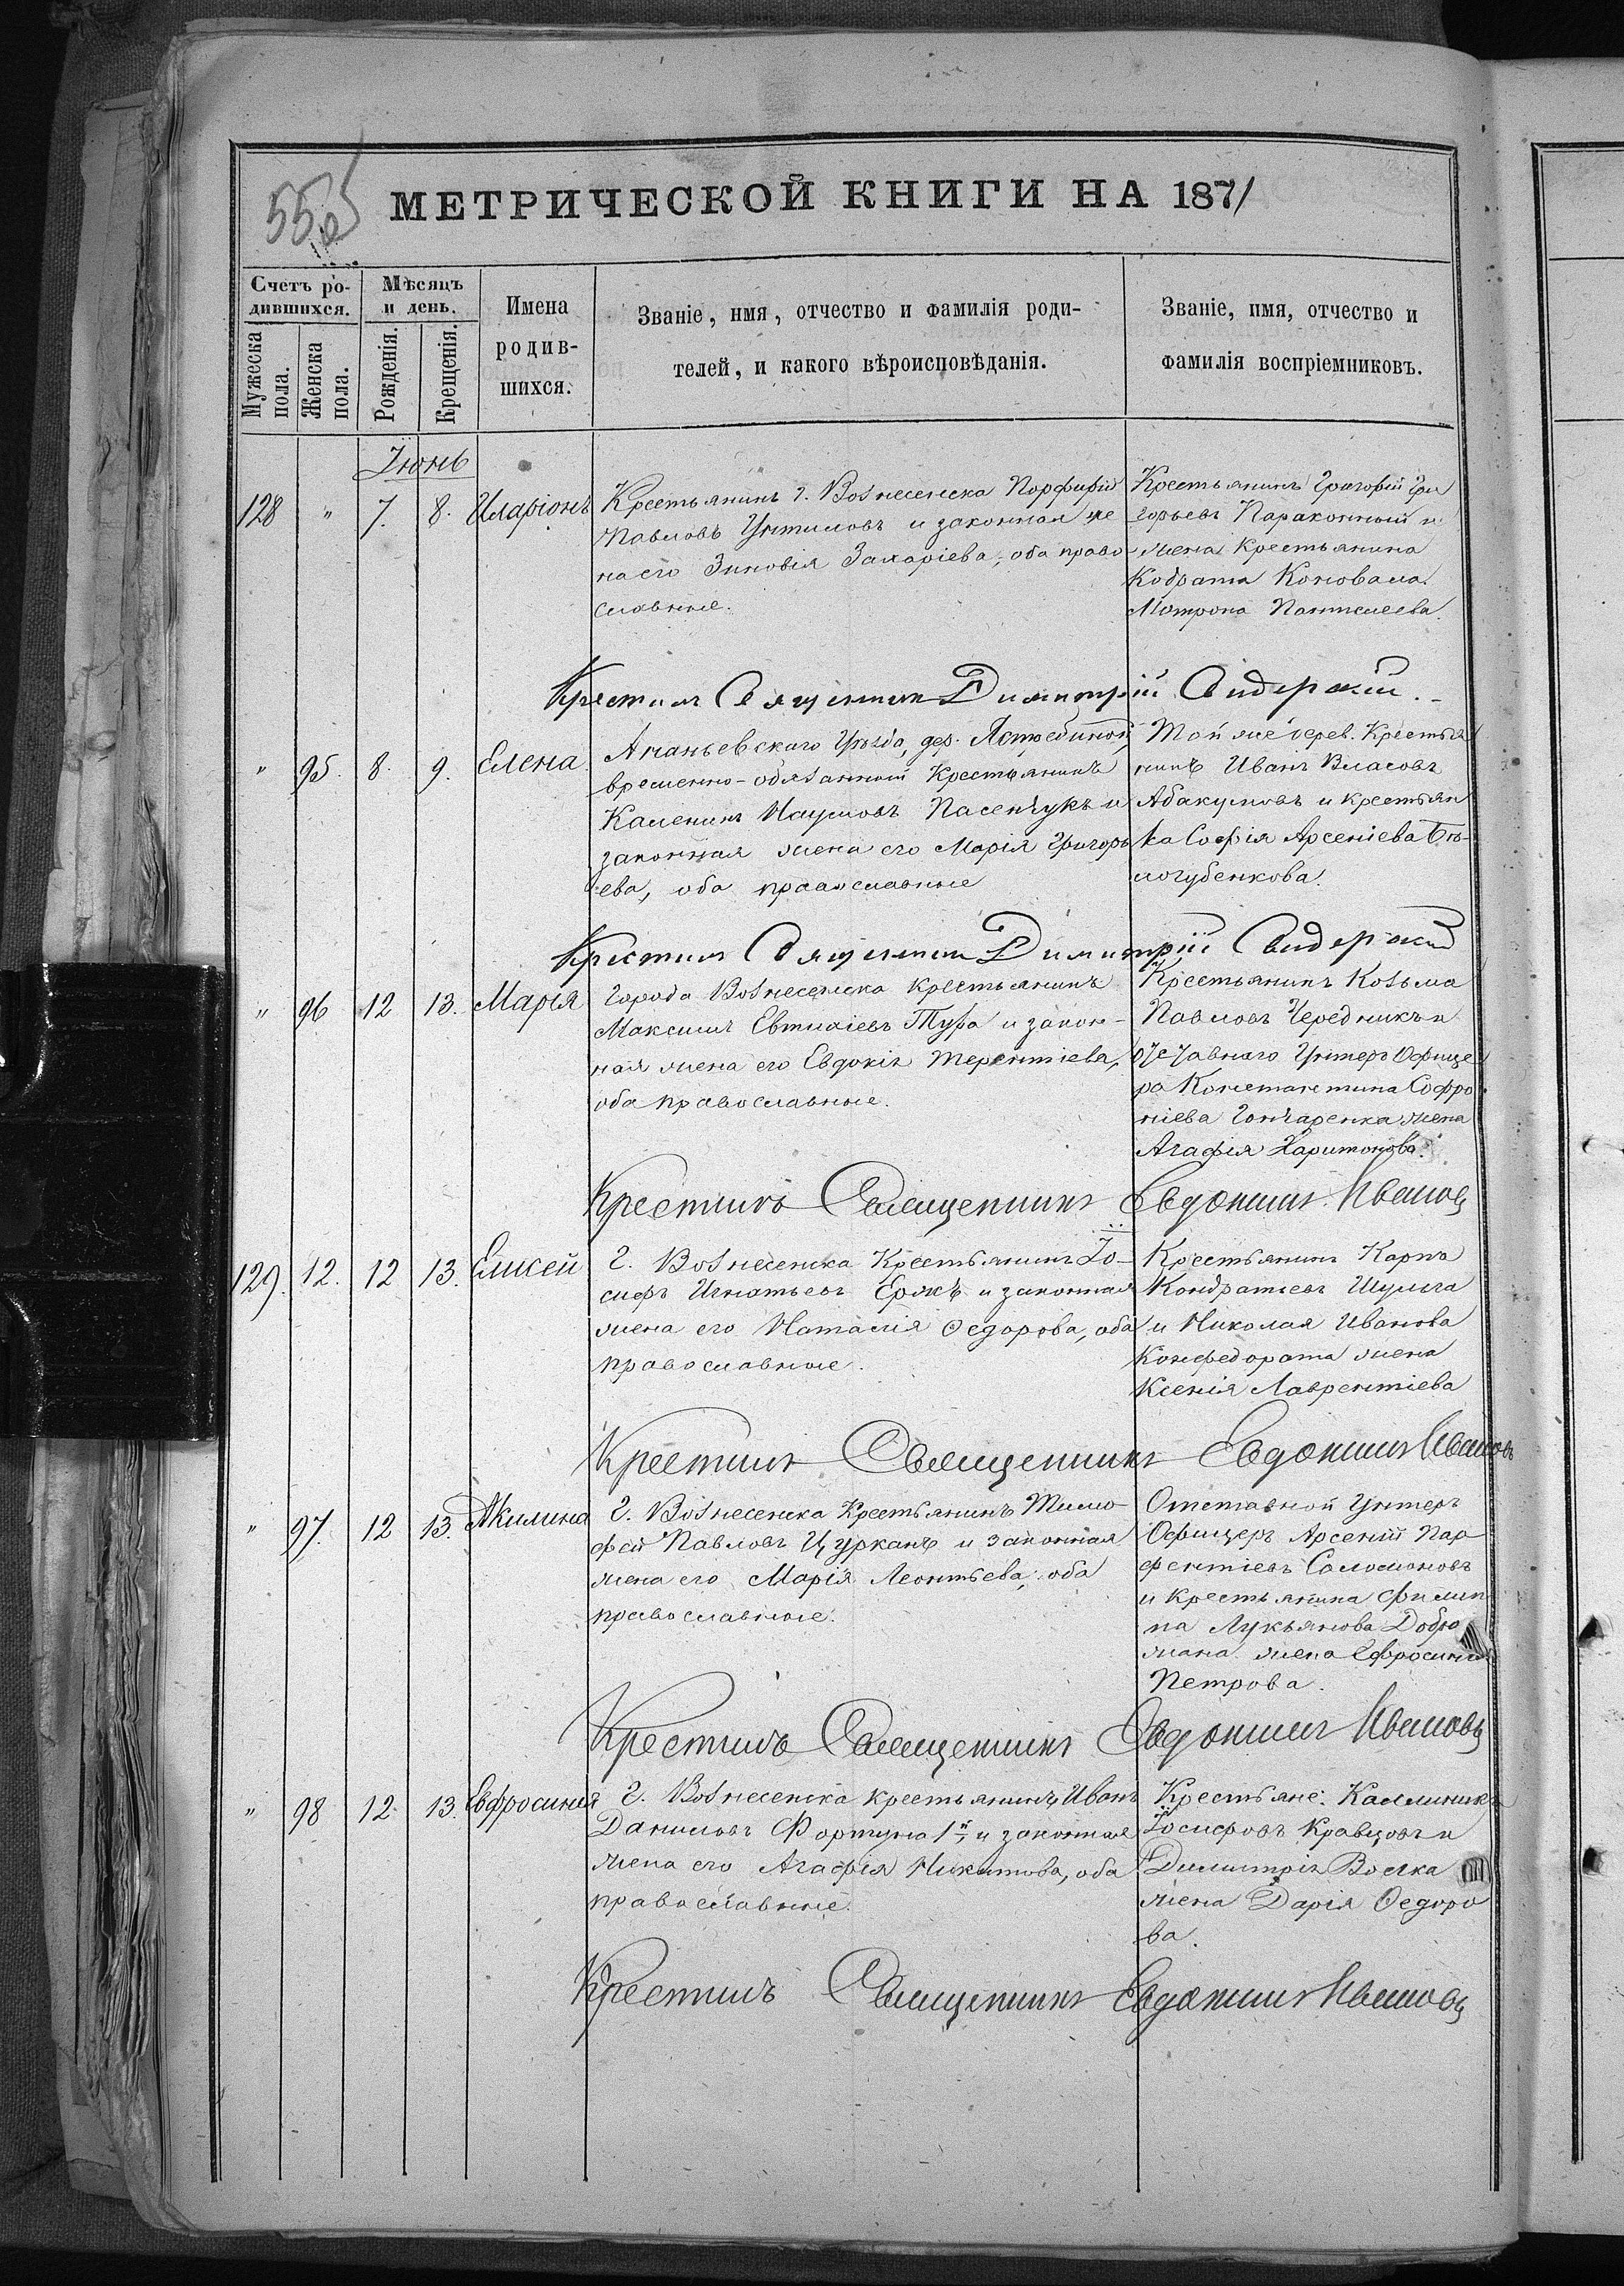 555
МЕТРИЧЕСКОЙ КНИГИ НА 1871
Счетъ ро-
дившихся.
Мужеска пола.
Женска пола.
Мѣсяцъ
и день.
Рожденія.
Крещенія.
Имена
родив-
шихся.
Званіе, имя, отчество и фамилія роди-
телей, и какого вѣроисповѣданія.
Званіе, имя, отчество и
фамилія воспріемниковъ.
Іюнь
128 " 7. 8. Иларіонъ
Крестьянинъ г. Вознесенска Порфирій
Павловъ Унтиловъ и законная же
на его Зиновія Захаріева, оба право
славные.
Крестьянинъ Григорій Гри
горьевъ Параконный и
жена Крестьянина
Кодрата Коновала
Матрона Пантелеева.
Крестилъ Священникъ Димитрій Свидерскій.
" 95. 8. 9. Елена
Ананьевскаго Уѣзда, дер. Ястребиной,
временно-обязанный Крестьянинъ
Каленикъ Наумовъ Пасенчукъ и
законная жена его Марія Григорь
ева, оба православные
Той же дерев. Крестья
нинъ Иванъ Власовъ
Абакумовъ и крестьян
ка Софія Арсеніева Бѣ-
логубенкова.
Крестилъ Священникъ Димитрій Свидерскій
" 96 12 13. Марія
Города Вознесенска крестьянинъ
Максимъ Евтихіевъ Тура и закон-
ная жена его Евдокія Терентіева,
оба православные.
Крестьянинъ Козьма
Павловъ Чередникъ и
отставнаго Унтеръ Офице
ра Константина Софро
ніева Гончаренка жена
Агафія Харитонова.
Крестилъ Священникъ Евдокимъ Ивановъ
129. 12. 12 13. Елисей
Г. Вознесенска Крестьянинъ Іо-
сифъ Игнатьевъ Ержъ и законная
жена его Наталія Ѳедорова, оба
православные.
Крестьянинъ Карпъ
Кондратьевъ Шульга
и Николая Иванова
Конфедората жена
Ксенія Лаврентіева
Крестилъ Священникъ Евдокимъ Ивановъ
" 97. 12 13. Акилина
Г. Вознесенска Крестьянинъ Тимо-
фей Павловъ Цурканъ и законная
жена его Марія Леонтьева, оба
православные.
Отставной Унтеръ
Офицеръ Арсеній Пар
фентіевъ Саломоновъ
и крестьянина Филип
па Лукьянова Добро
жана жена Ефросинія
Петрова.
Крестилъ Священникъ Евдокимъ Ивановъ
" 98 12 13. Евфросинія
Г. Вознесенска крестьянинъ Иванъ
Даниловъ Фортуна 1й, и законная
жена его Агафія Никитова, оба
православные.
Крестьяне: Каллиникъ
Іосифовъ Кравцовъ и
Димитрія Волка
жена Дарія Ѳедоро
ва.
Крестилъ Священникъ Евдокимъ Ивановъ